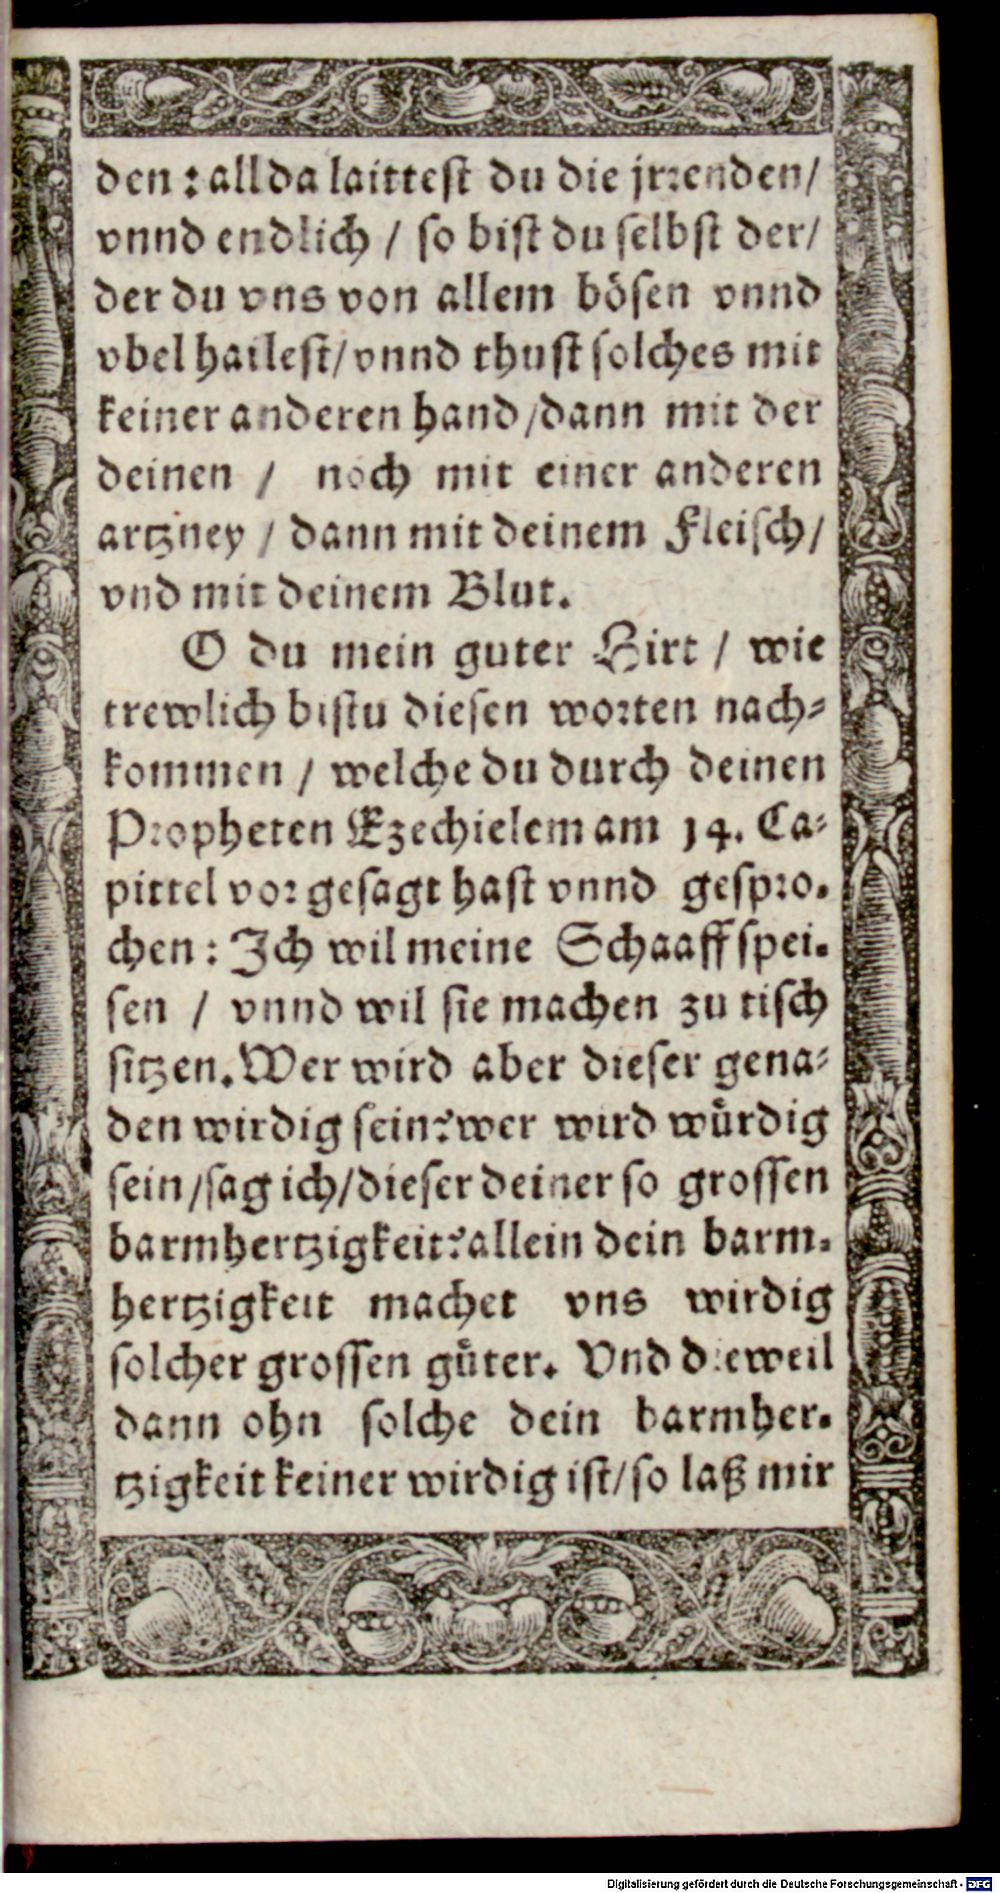 den : allda laittest du die jrrenden/
vnnd endlich / so bist du selbst der/
der du vns von allem bösen vnnd
vbel hailest/vnnd thust solches mit
keiner anderen hand/dann mit der
deinen / noch mit einer anderen
artzney / dann mit deinem Fleisch/
vnd mit deinem Blut.
O du mein guter Hirt / wie
trewlich bistu diesen worten nach-
kommen / welche du durch deinen
Propheten Ezechielem am 14. Ca-
pittel vor gesagt hast vnnd gespro-
chen: Ich wil meine Schaaff spei-
sen / vnnd wil sie machen zu tisch
sitzen. Wer wird aber dieser gena-
den wirdig sein? wer wird wůrdig
sein/sag ich/dieser deiner so grossen
barmhertzigkeit? allein dein barm-
hertzigkeit machet vns wirdig
solcher grossen gůter. Vnd dieweil
dann ohn solche dein barmher-
tzigkeit keiner wirdig ist/so laß mir
Digitalisierung gefördert durch die Deutsche Forschungsgemeinschaft - DFG